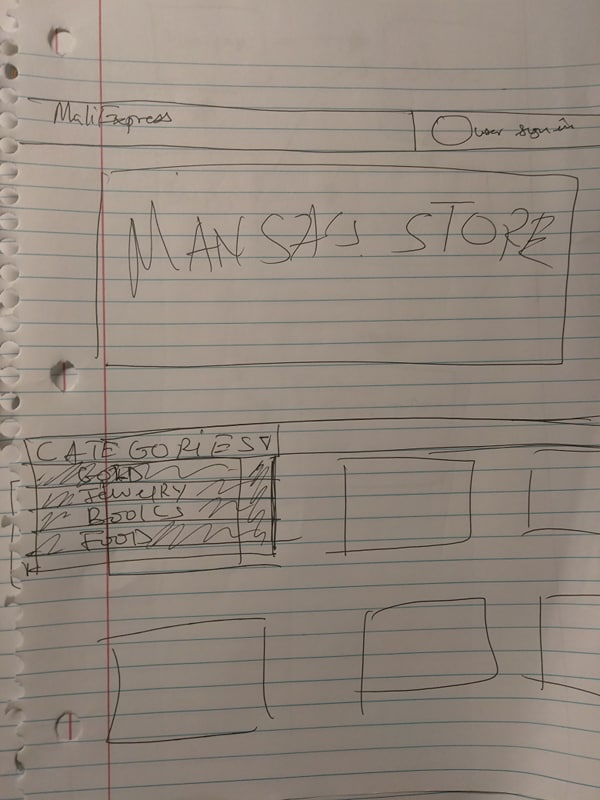 MaliExpress
user sign in
MANSA'S STORE
CATEGORIES
GOLD
JewelRY
BOOKS
FOOD